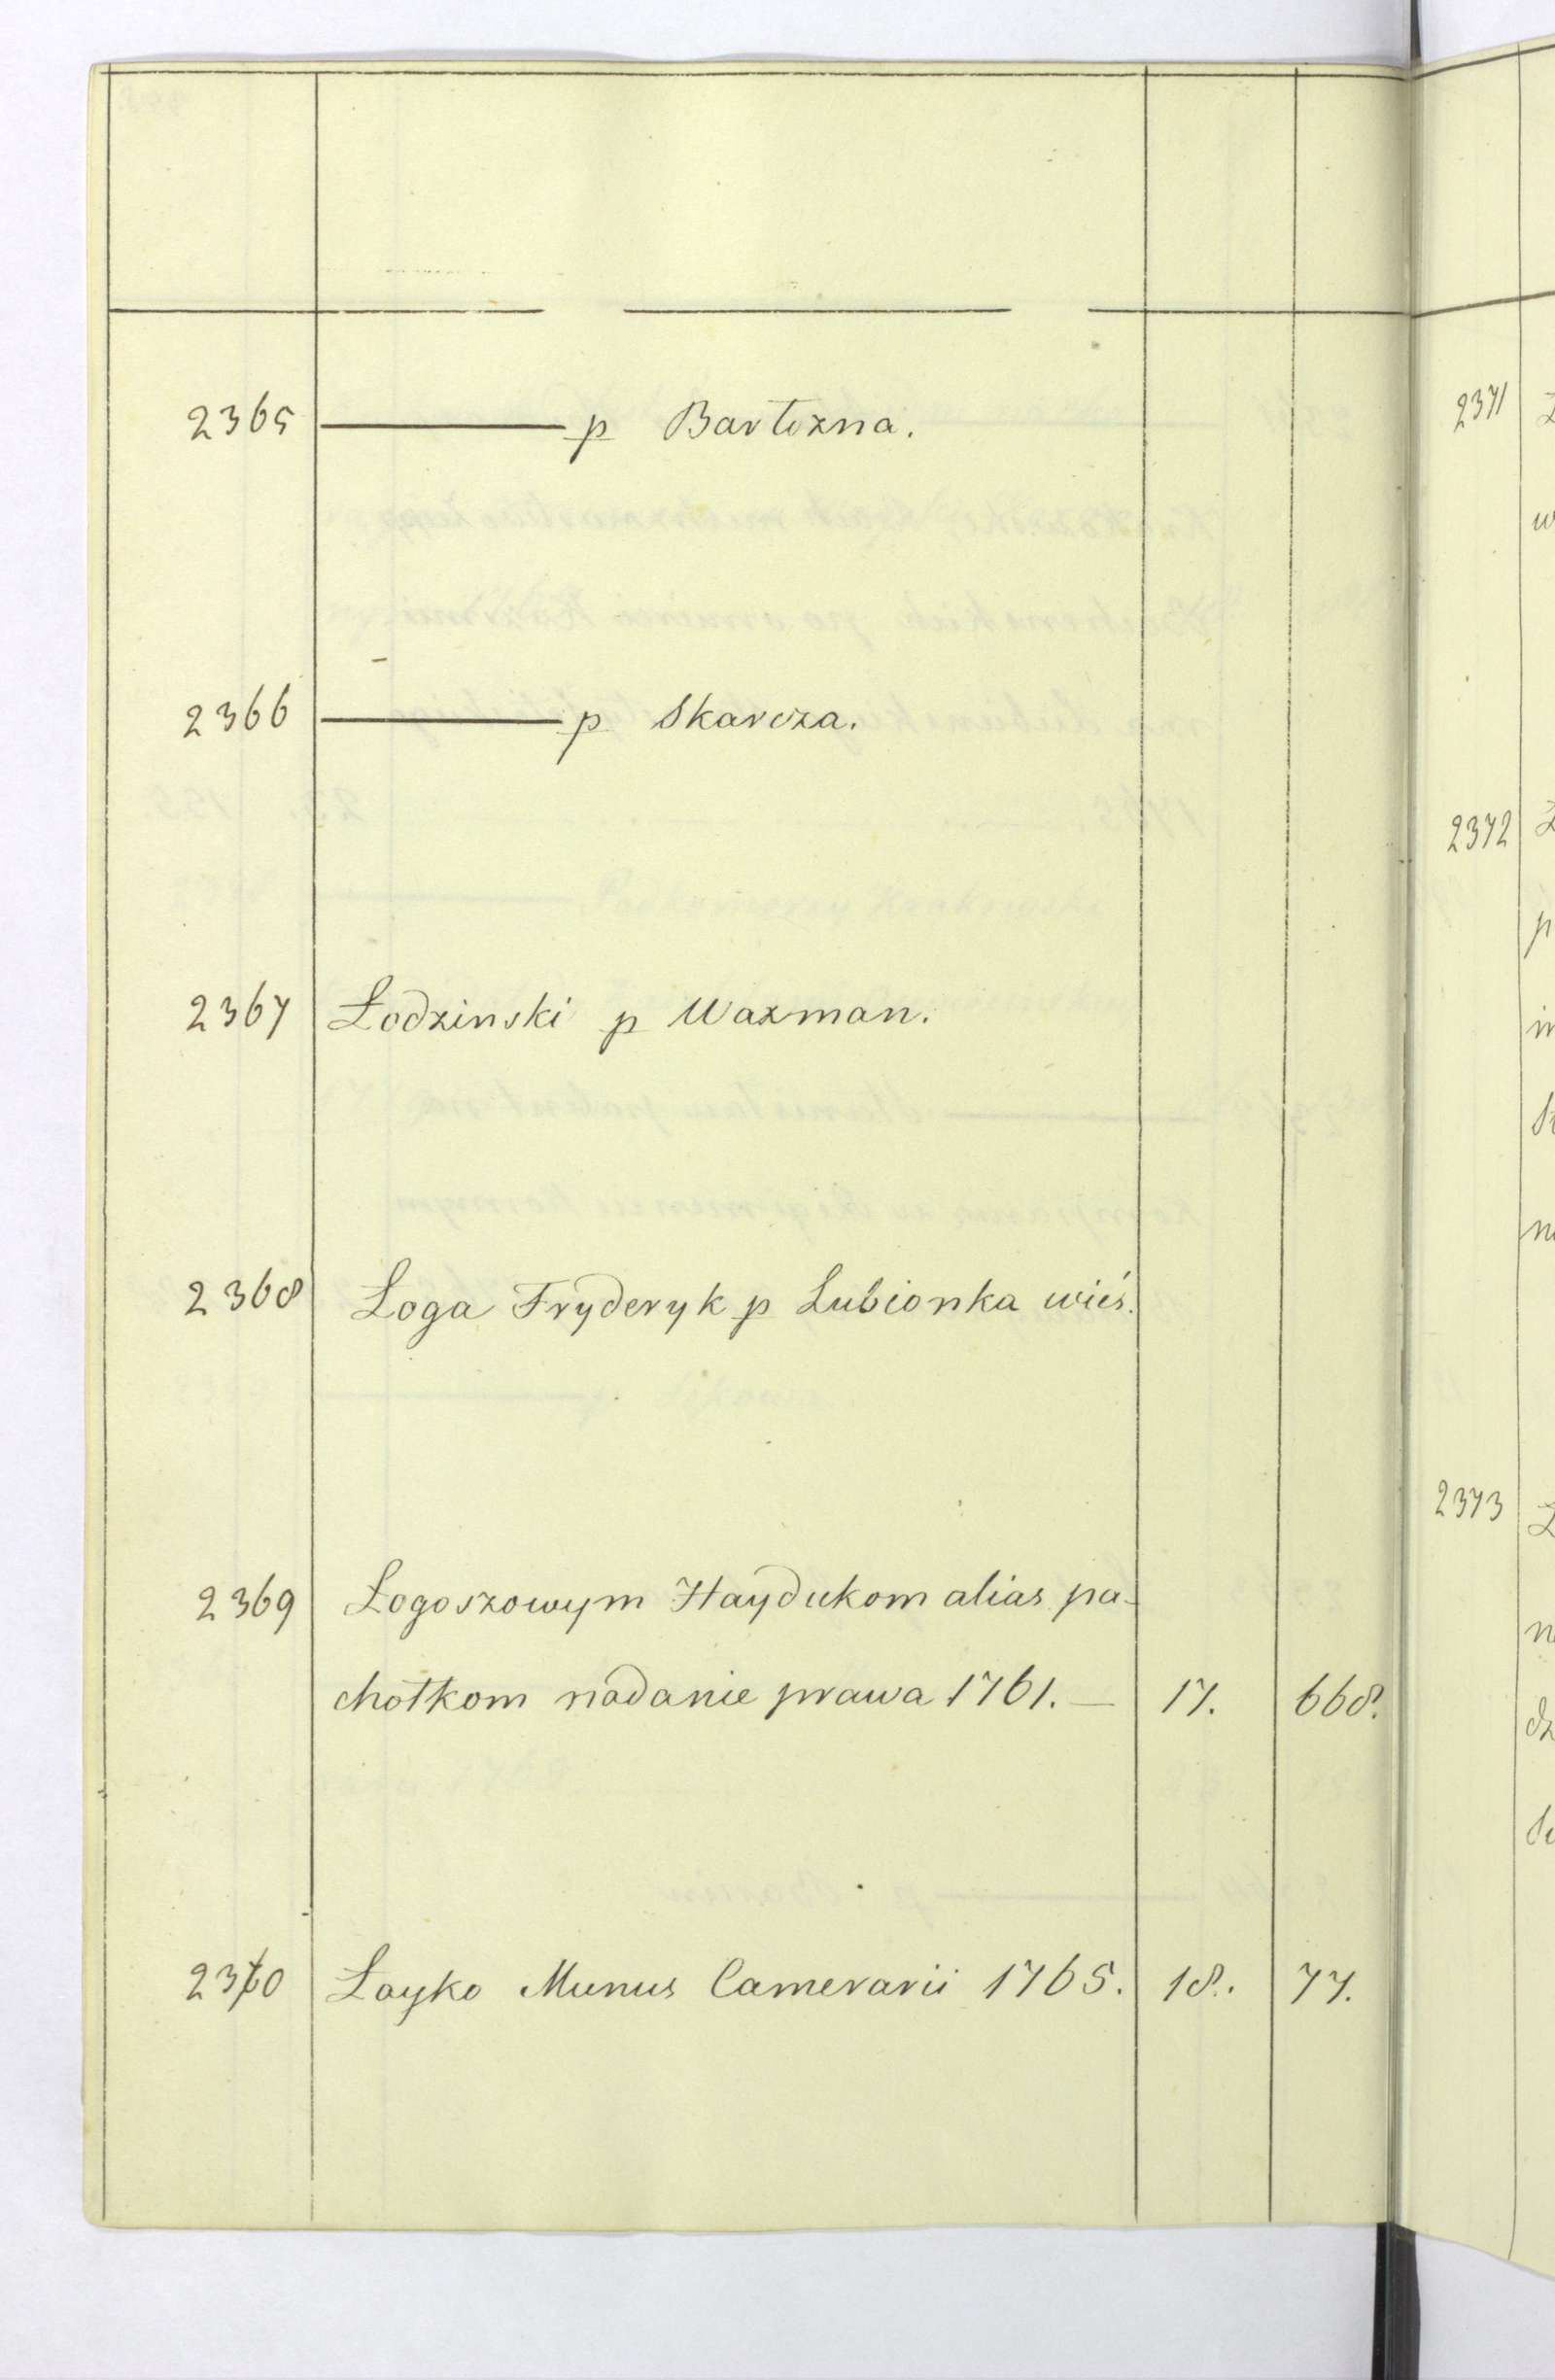 2365 ——— p Bartozna.
2366 ——— p Skarcza.
2367 Łodzinski p Wazman.
2368 Łoga Fryderyk p Lubionka wieś.
2369 Łogoszowym Haydukom alias pa-
chołkom nadanie prawa 1761. — 17. 668.
2370 Łoyko Munus Camerarii 1765. 18. 77.
2371
2372
2373